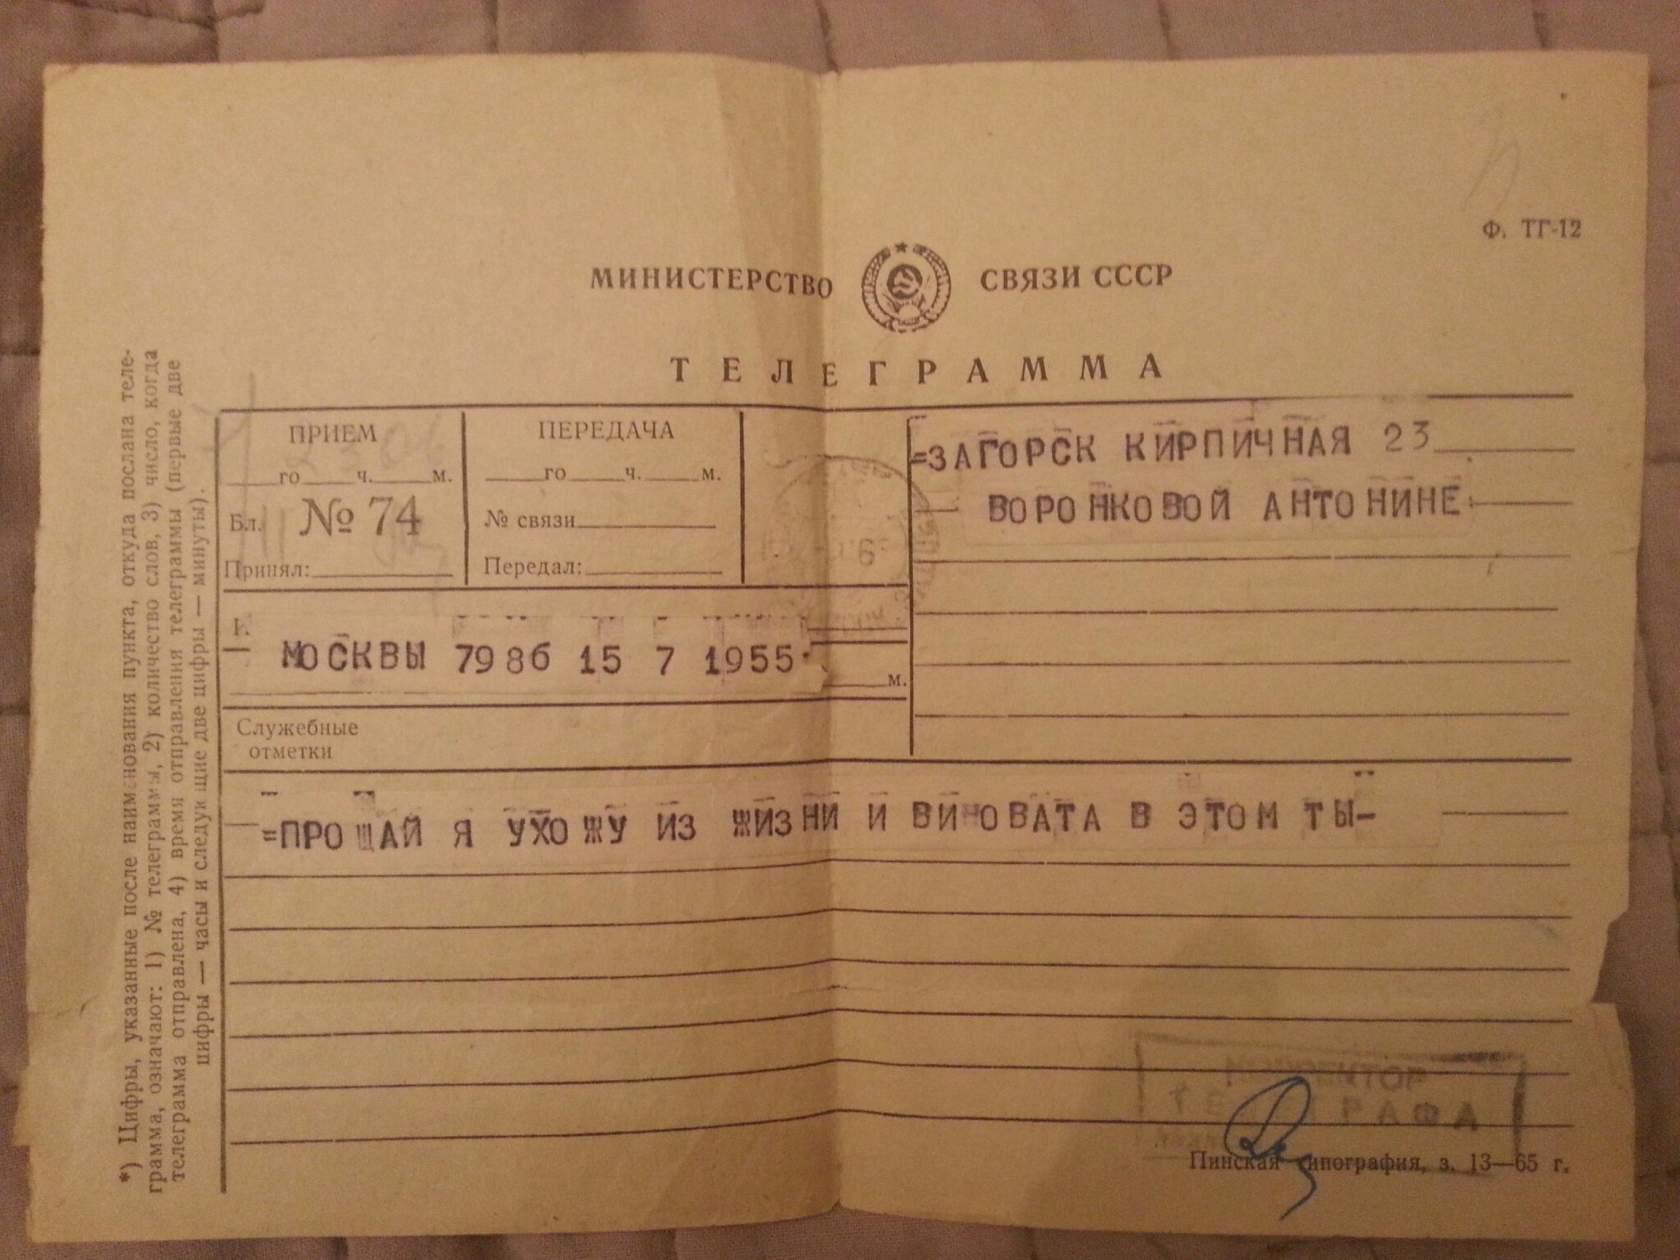 Ф. ТГ-12
МИНИСТЕРСТВО СВЯЗИ СССР
ТЕЛЕГРАММА
ПРИЕМ
го ч. м.
Бл. № 74
Принял:
ПЕРЕДАЧА
го ч. м.
№ связи
Передал:
=ЗАГОРСК КИРПИЧНАЯ 23
ВОРОНКОВОЙ АНТОНИНЕ
МОСКВЫ 7986 15 7 1955
м.
Служебные
отметки
=ПРОЩАЙ Я УХОЖУ ИЗ ЖИЗНИ И ВИНОВАТА В ЭТОМ ТЫ-
*) Цифры, указанные после наименования пункта, откуда послана теле-
грамма, означают: 1) № телеграммы, 2) количество слов, 3) число, когда
телеграмма отправлена, 4) время отправления телеграммы (первые две
цифры — часы и следующие две цифры — минуты).
Пинская типография, з. 13—65 г.